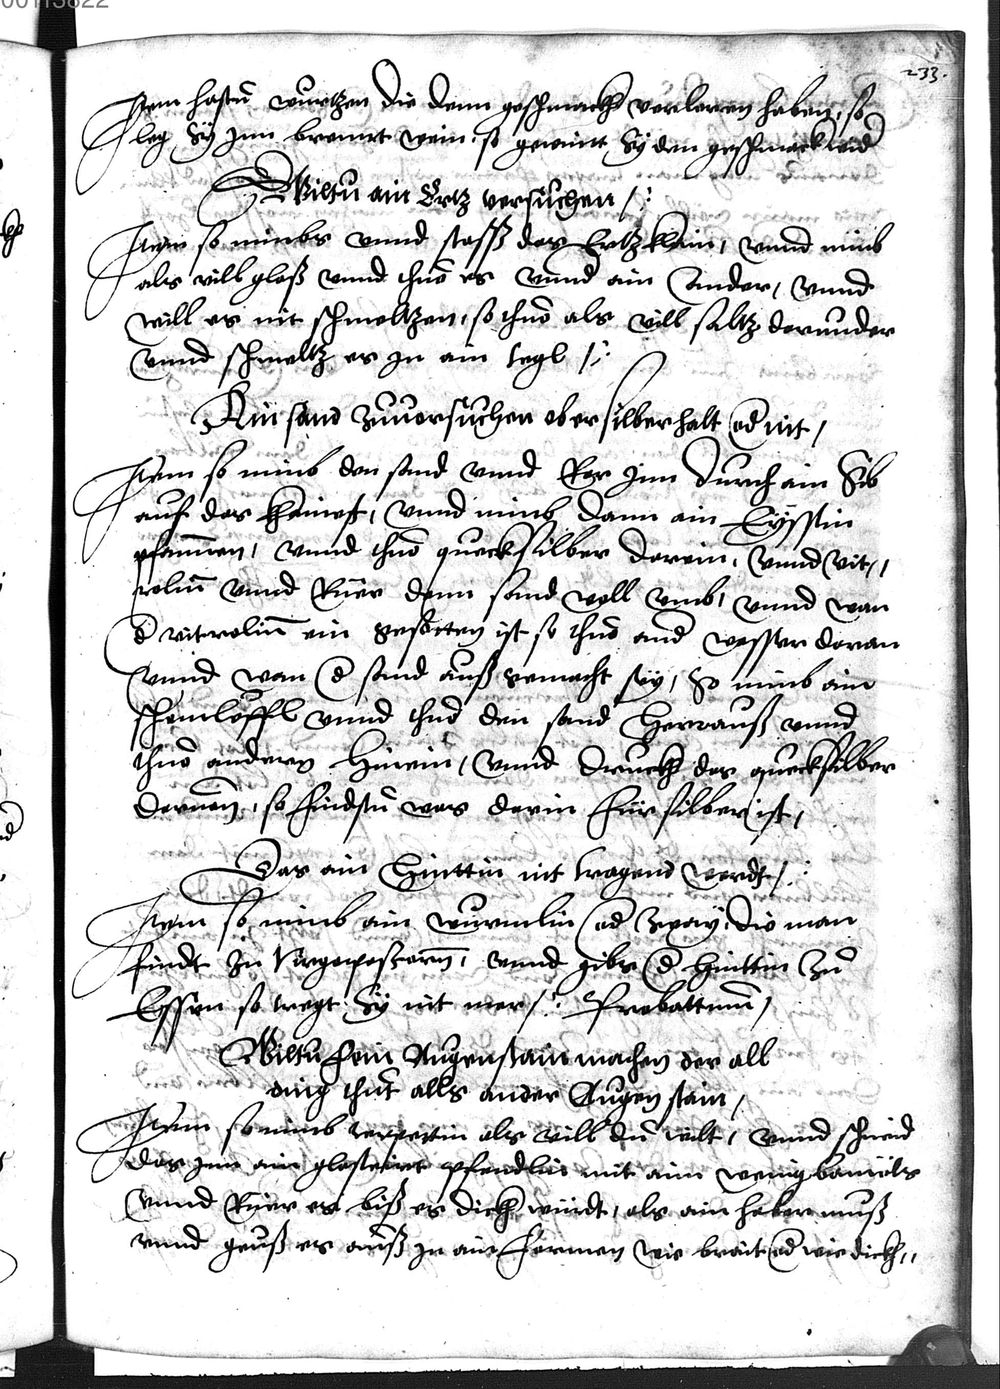 233.
Item hastu wurtzen die denn geschmackh verloren haben, so
leg Sÿ Jnn brennt wein, so gewint Sÿ den geschmackh wid
Wiltu ain Ertz versuchen /:
Item so nimbs vnnd stoss das Ertz klain, vnnd nimb
als vill glaß vnnd thuo es vnnd ain Ander, vnnd
will es nit schmeltzen, so thuo als vill saltz darunder
vnnd schmeltz es Jn ain tegl /:
Ain sand Zuuorsuchen ober silber halt od nit /
Item so nimb den sand vnnd Rer Jnn durch ain Sib
auf das , vnnd nimb dann ain Eÿssin
pfannen, vnnd thuo queckhsilber darein, vnnd vit,,
rolium vnnd Rüer denn sand woll vmb, vnnd wan
d vitrolium ein gesotten ist so thuo and wasser daran
vnnd wan d sand auß gemacht seÿ, So nimb ain
schemlöffl vnnd thuo den sand herrauß vnnd
thuo anderen hinein, vnnd druckh das queckhsilber
darnon, so findstu was darin für silber ist,
Das ain Hinttin nit tragend werdt /:
Item so nimb ain würmlin od Zwaÿ, die man
findt Jn , vnnd gibs d hinttin Zu
Essen so tregt Sÿ nit mer /: Probattum /
Wiltu fein Augenstain machen der all
ding thut alls ander Augen stain,
Item so nimb terpettin als vill du wilt, vnnd schneid
das Jnn ain glasteirt pfendlin mit ain wenig bamöls
vnnd Rüer es biß es dickh wirdt, als ain haber muß
vnnd geuß es auß Jn ain formen wie brait od wie dickh,,